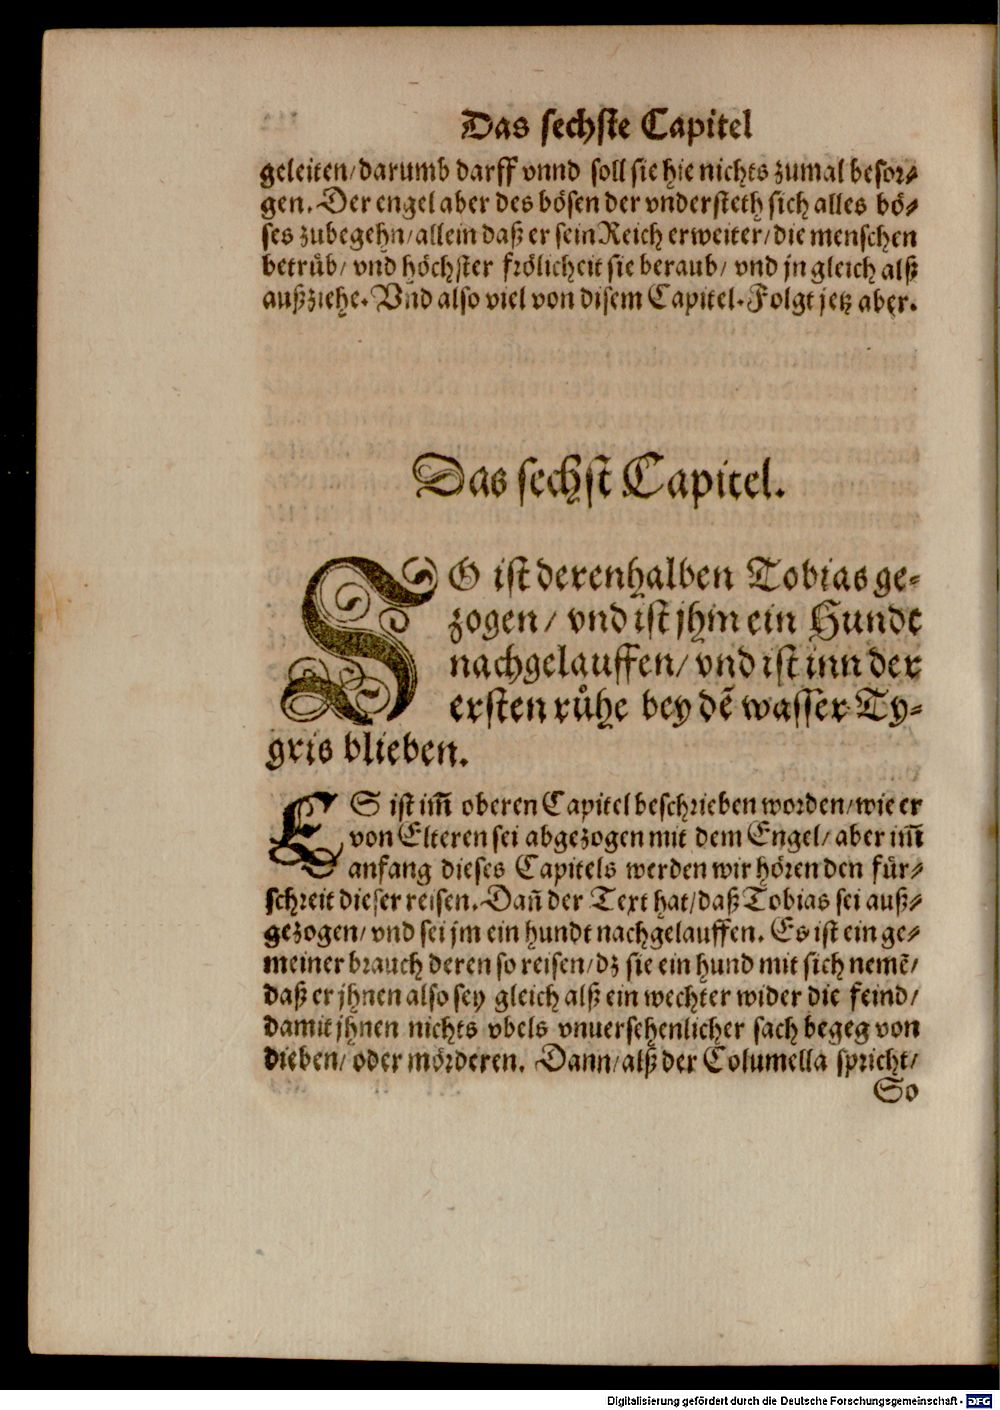 Das sechste Capitel
geleiten/ darumb darff vnnd soll sie hie nichts zumal besor⸗
gen. Der engel aber des bösen der vndersteth sich alles bö⸗
ses zubegehn/ allein daß er sein Reich erweiter/ die menschen
betrüb/ vnd höchster frölicheit sie beraub/ vnd jn gleich alß
außziehe. Vnd also viel von disem Capitel. Folgt jetz aber.
Das sechst Capitel.
SO ist derenhalben Tobias ge⸗
zogen/ vnd ist jhm ein Hundt
nachgelauffen/ vnd ist inn der
ersten růhe bey dẽ wasser Ty⸗
gris blieben.
ES ist im̃ oberen Capitel beschrieben worden/ wie er
von Elteren sei abgezogen mit dem Engel/ aber im̃
anfang dieses Capitels werden wir hören den für⸗
schreit dieser reisen. Dañ der Text hat/ daß Tobias sei auß⸗
gezogen/ vnd sei jm ein hundt nachgelauffen. Es ist ein ge⸗
meiner brauch deren so reisen/ dz sie ein hund mit sich nemẽ/
daß er jhnen also sey gleich alß ein wechter wider die feind/
damit jhnen nichts vbels vnuersehenlicher sach begeg von
dieben/ oder mörderen. Dann/ alß der Columella spricht/
So
Digitalisierung gefördert durch die Deutsche Forschungsgemeinschaft - DFG